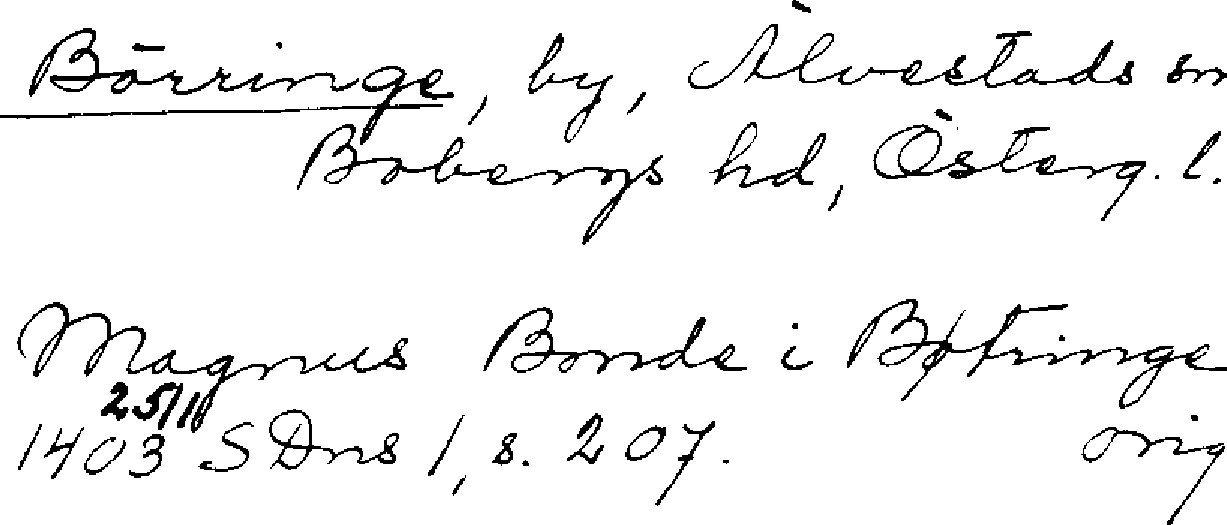 Börringe, by, Älvestads sn
Bobergs hd, Österg. l.
Magnus Bonde i Bøtringe
25/1
1403 SDns 1, s. 207. orig